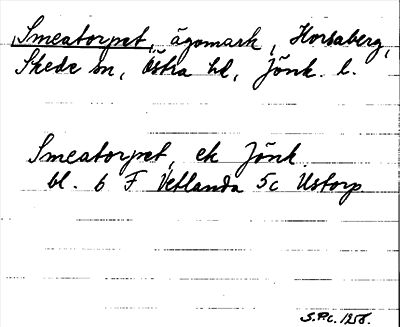 Smeatorpet, ägomark, Horsaberg,
Skede sn, Östra hd, Jönk. l.
Smeatorpet, ek Jönk
bl. 6 F Vetlanda 5c Ustorp
S.P.c. 1258.